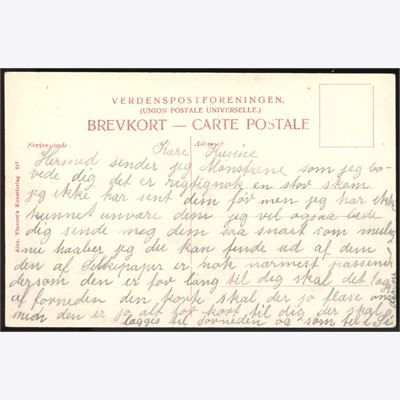 VERDENSPOSTFORENINGEN.
(UNION POSTALE UNIVERSELLE.)
BREVKORT — CARTE POSTALE
Skriveplads: Adresse:
Alex. Vincent's Kunstforlag 217
Kære Kusine
Hermed sender jeg Mønstrene som jeg lo-
vede dig det er rigtignok en stor skam
jeg ikke har sent dem før men jeg har ikke
kunnet unvære dem jeg vil ogsaa bede
dig sende meg dem saa snart som mulig
nu haaber jeg du kan finde ud af dem
den af Silkepapir er nok nærmest passende
dersom den er for lang til dig skal det lægges
af forneden den korte skal der jo
men den er jo alt for kort til dig der skal
lægges til forneden og som